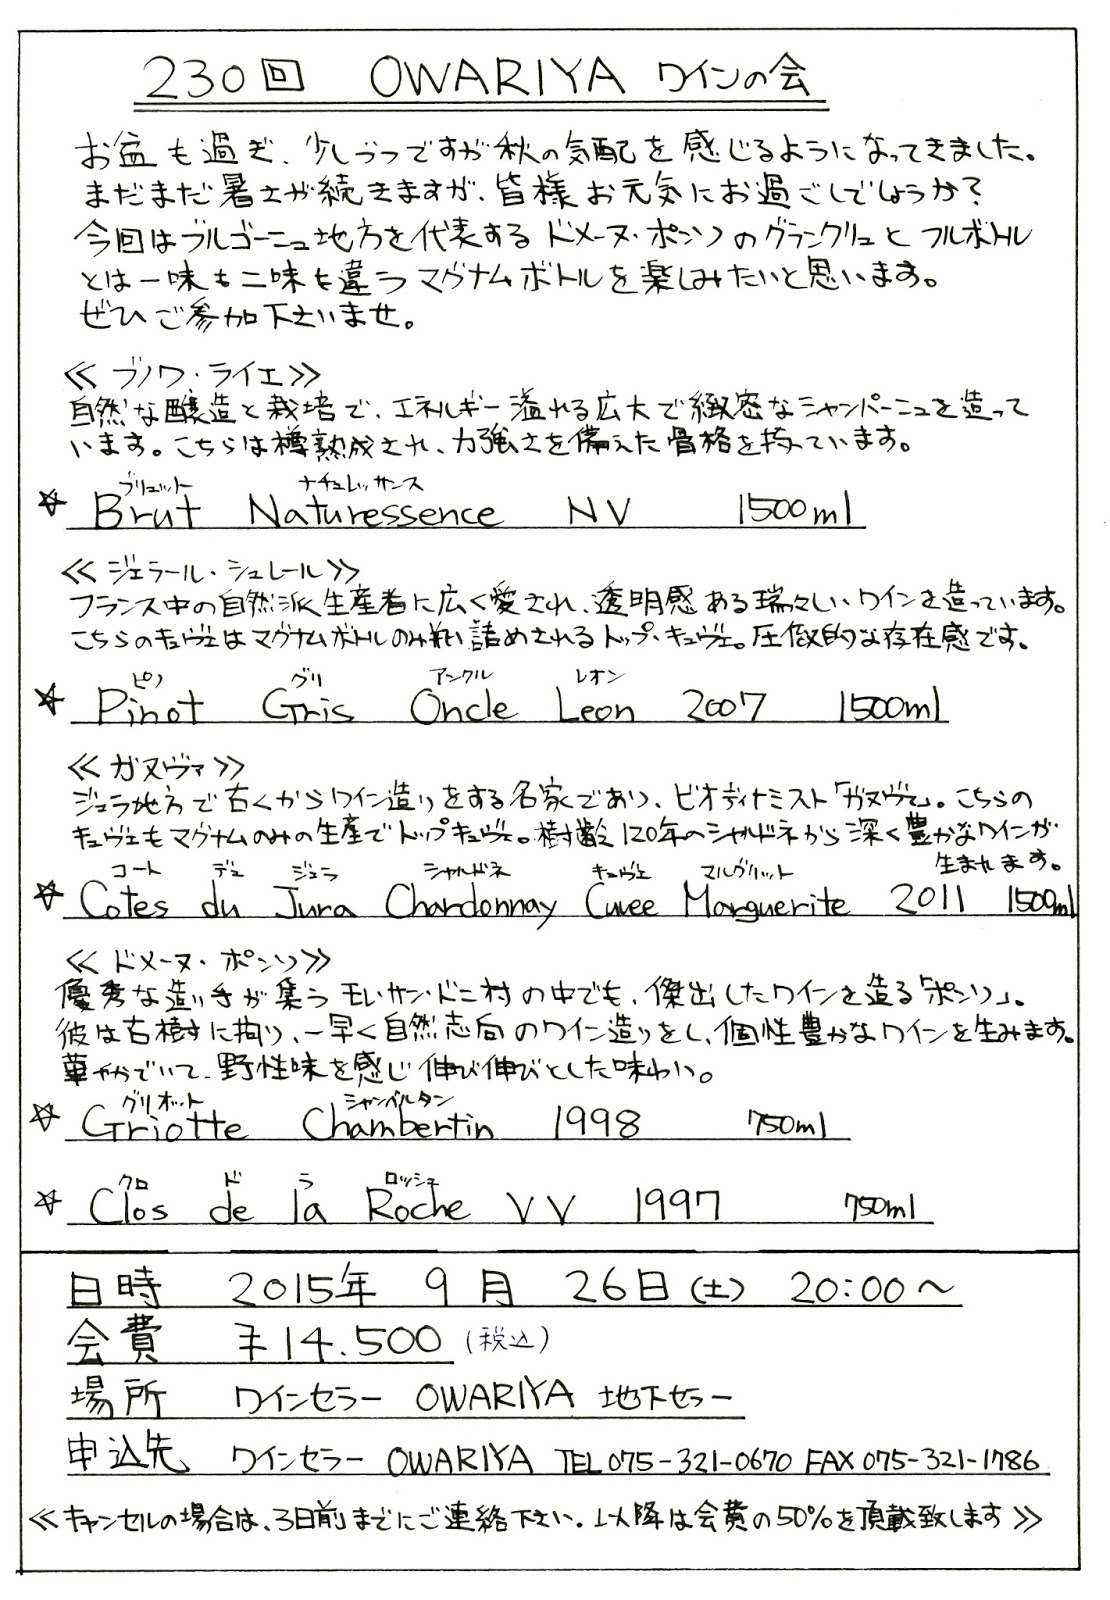 230回 OWARIYA ワインの会
お盆も過ぎ、少しづつですが秋の気配を感じるようになってきました。
まだまだ暑さが続きますが、皆様お元気にお過ごしでしょうか？
今回はブルゴーニュ地方を代表するドメーヌ・ポンソのグランクリュとフルボトル
とは一味も二味も違うマグナムボトルを楽しみたいと思います。
ぜひご参加下さいませ。
≪ブノワ・ライエ≫
自然な醸造と栽培で、エネルギー溢れる広大で緻密なシャンパーニュを造って
います。こちらは樽熟成され、力強さを備えた骨格を持っています。
ブリュット ナチュレッサンス
☆ Brut Naturessence NV 1500ml
≪ジェラール・シュレール≫
フランス中の自然派生産者に広く愛され、透明感ある瑞々しいワインを造っています。
こちらのキュヴェはマグナムボトルのみ詰めされるトップ・キュヴェ。圧倒的な存在感です。
ピノ グリ アンクル レオン
☆ Pinot Gris Oncle Leon 2007 1500ml
≪ガヌヴァ≫
ジュラ地方で古くからワイン造りをする名家であり、ビオディナミスト「ガヌヴァ」。こちらの
キュヴェもマグナムのみの生産でトップキュヴェ。樹齢120年のシャルドネから深く豊かなワインが
生まれます。
コート デュ ジュラ シャルドネ キュヴェ マルグリット
☆ Cotes du Jura Chardonnay Cuvee Marguerite 2011 1500ml
≪ドメーヌ・ポンソ≫
優秀な造り手が集うモレ・サン・ドニ村の中でも、傑出したワインを造る「ポンソ」。
彼は古樹に拘り、一早く自然志向のワイン造りをし、個性豊かなワインを生みます。
華やかでいて、野性味を感じ伸び伸びとした味わい。
グリオット シャンベルタン
☆ Griotte Chambertin 1998 750ml
クロ ド ラ ロッシェ
☆ Clos de la Roche VV 1997 750ml
日時 2015年 9月 26日(土) 20:00～
会費 ¥14.500 (税込)
場所 ワインセラー OWARIYA 地下セラー
申込先 ワインセラー OWARIYA TEL 075-321-0670 FAX 075-321-1786
≪キャンセルの場合は、3日前までにご連絡下さい。以降は会費の50%を頂戴致します≫